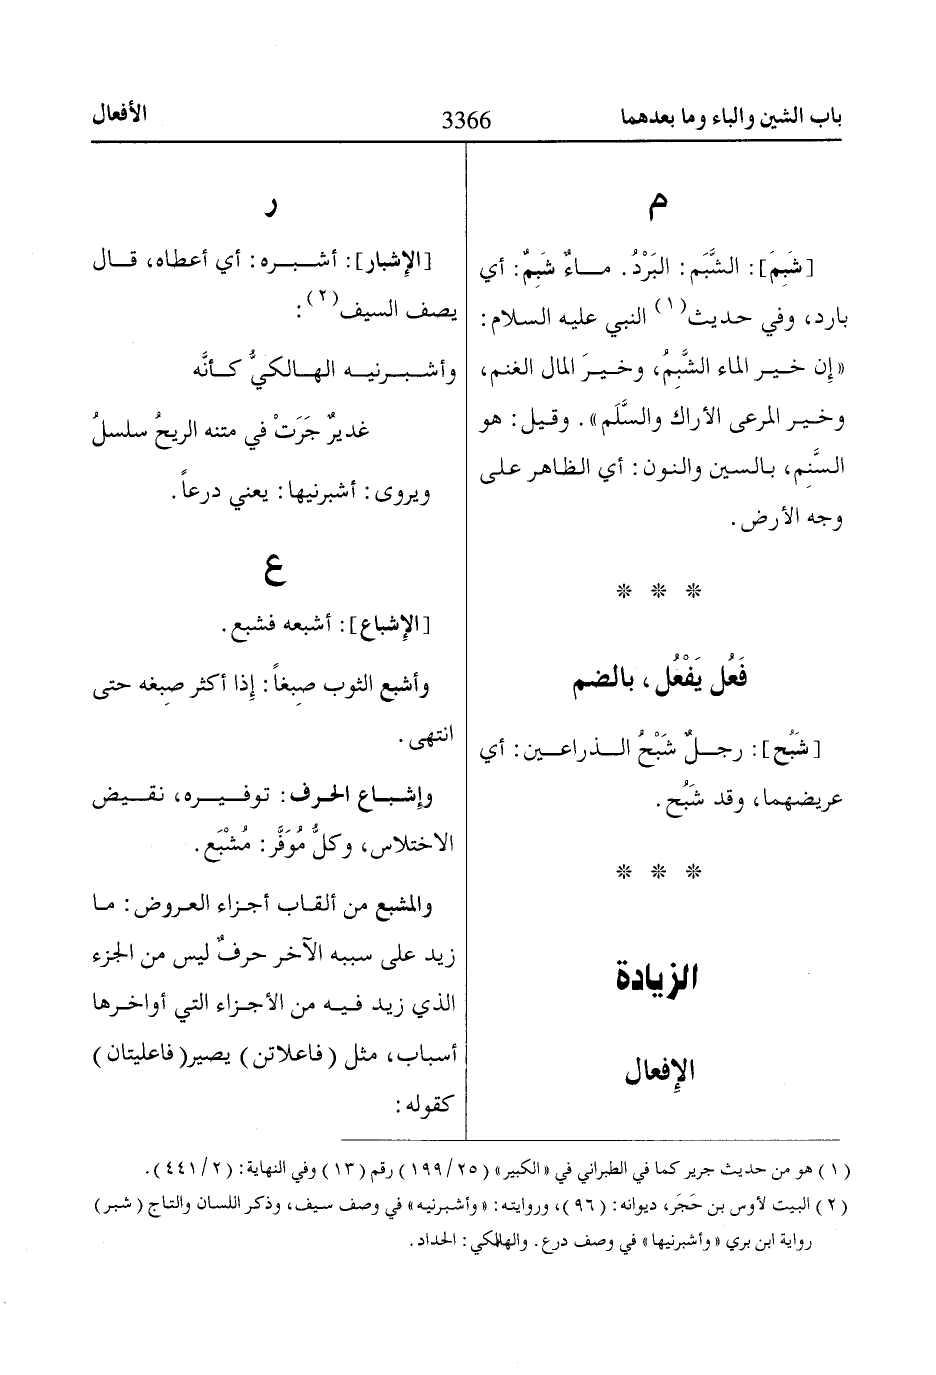 باب الشين والباء وما بعدهما
3366
الأفعال
م
[شَبِمَ]: الشَّبَم: البَرْدُ. مـاءٌ شَبِمٌ: أي
بارد، وفي حديث(١) النبي عليه السلام:
«إن خـيـر الماء الشَّبِمُ، وخـيـرَ المال الغنم،
وخـيـر المرعى الأراك والسَّلَم». وقـيـل: هو
السَّنِم، بـالسين والنون: أي الظاهر علـى
وجه الأرض.
* * *
فَعُل يَفْعُل، بالضم
[شَبُح]: رجـلٌ شَبْحُ الـذراعـين: أي
عريضهما، وقد شَبُح.
* * *
الزيادة
الإفعال
ر
[الإشبار]: أشـبـره: أي أعطاه، قـال
يصف السيف(٢):
وأشـبـرنيـه الهـالكيُّ كـأنَّه
غديرٌ جَرَتْ في متنه الريحُ سلسلُ
ويروى: أشبرنيها: يعني درعاً.
ع
[الإشباع]: أشبعه فشبع.
وأشبع الثوب صِبغاً: إذا أكثر صِبغه حتى
انتهى.
وإشـبـاع الحرف: توفـيـره، نقـيـض
الاختلاس، وكلُّ مُوَفَّر: مُشْبَع.
والمشبع من ألقـاب أجـزاء العروض: مـا
زيد على سببه الآخر حرفٌ ليس من الجزء
الذي زيـد فـيـه من الأجـزاء التي أواخـرها
أسبـاب، مثل (فـاعلاتن) يصير(فاعليتان)
كقوله:
(١) هو من حديث جرير كما في الطبراني في «الكبير» (١٩٩/٢٥) رقم (١٣) وفي النهاية: (٤٤١/٢).
(٢) البيت لأوس بن حَجَر، ديوانه: (٩٦)، وروايته: «وأشبرنيه» في وصف سيف، وذكر اللسان والتاج (شبر)
رواية ابن بري «وأشبرنيها» في وصف درع. والهالكي: الحداد.